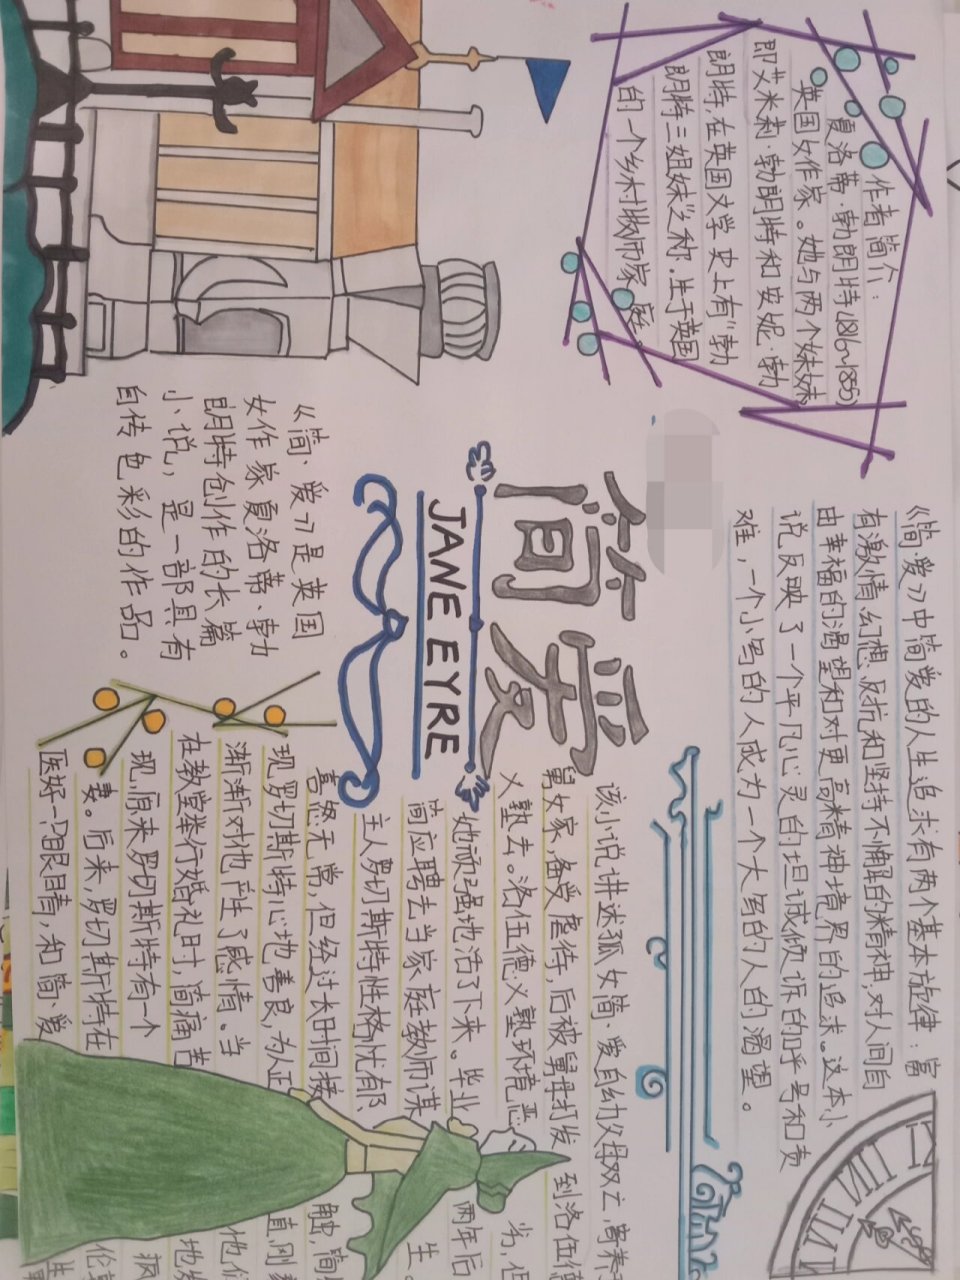 作者简介:
夏洛蒂·勃朗特(1816~1855)
英国女作家。她与两个妹妹
即艾米莉·勃朗特和安妮·勃
朗特,在英国文学史上有"勃
朗特三姐妹"之称.生于英国
的一个乡村牧师家庭。
《简·爱》中简爱的人生追求有两个基本旋律:富
有激情、幻想、反抗和坚持不懈的精神;对人间自
由幸福的渴望和对更高精神境界的追求。这本小
说反映了一个平凡心灵的坦诚倾诉的呼号和责
难,一个小写的人成为一个大写的人的渴望。
简爱
JANE EYRE
《简·爱》是英国
女作家夏洛蒂·勃
朗特创作的长篇
小说,是一部具有
自传色彩的作品。
该小说讲述孤女简·爱自幼父母双亡 寄养
舅女家,备受虐待,后被舅母打发 到洛伍德
义塾去。洛伍德义塾环境恶 劣,但
她顽强地活了下来。毕业 两年后
简应聘去当家庭教师谋 生。
主人罗切斯特性格忧郁、
喜怒无常,但经过长时间接 触,简
现罗切斯特心地善良,为正 直,刚
渐渐对他产生了感情。当 他们
在教堂举行婚礼时,简痛苦 地发
现,原来罗切斯特有一个 疯
妻。后来,罗切斯特在
医好一只眼睛,和简·爱